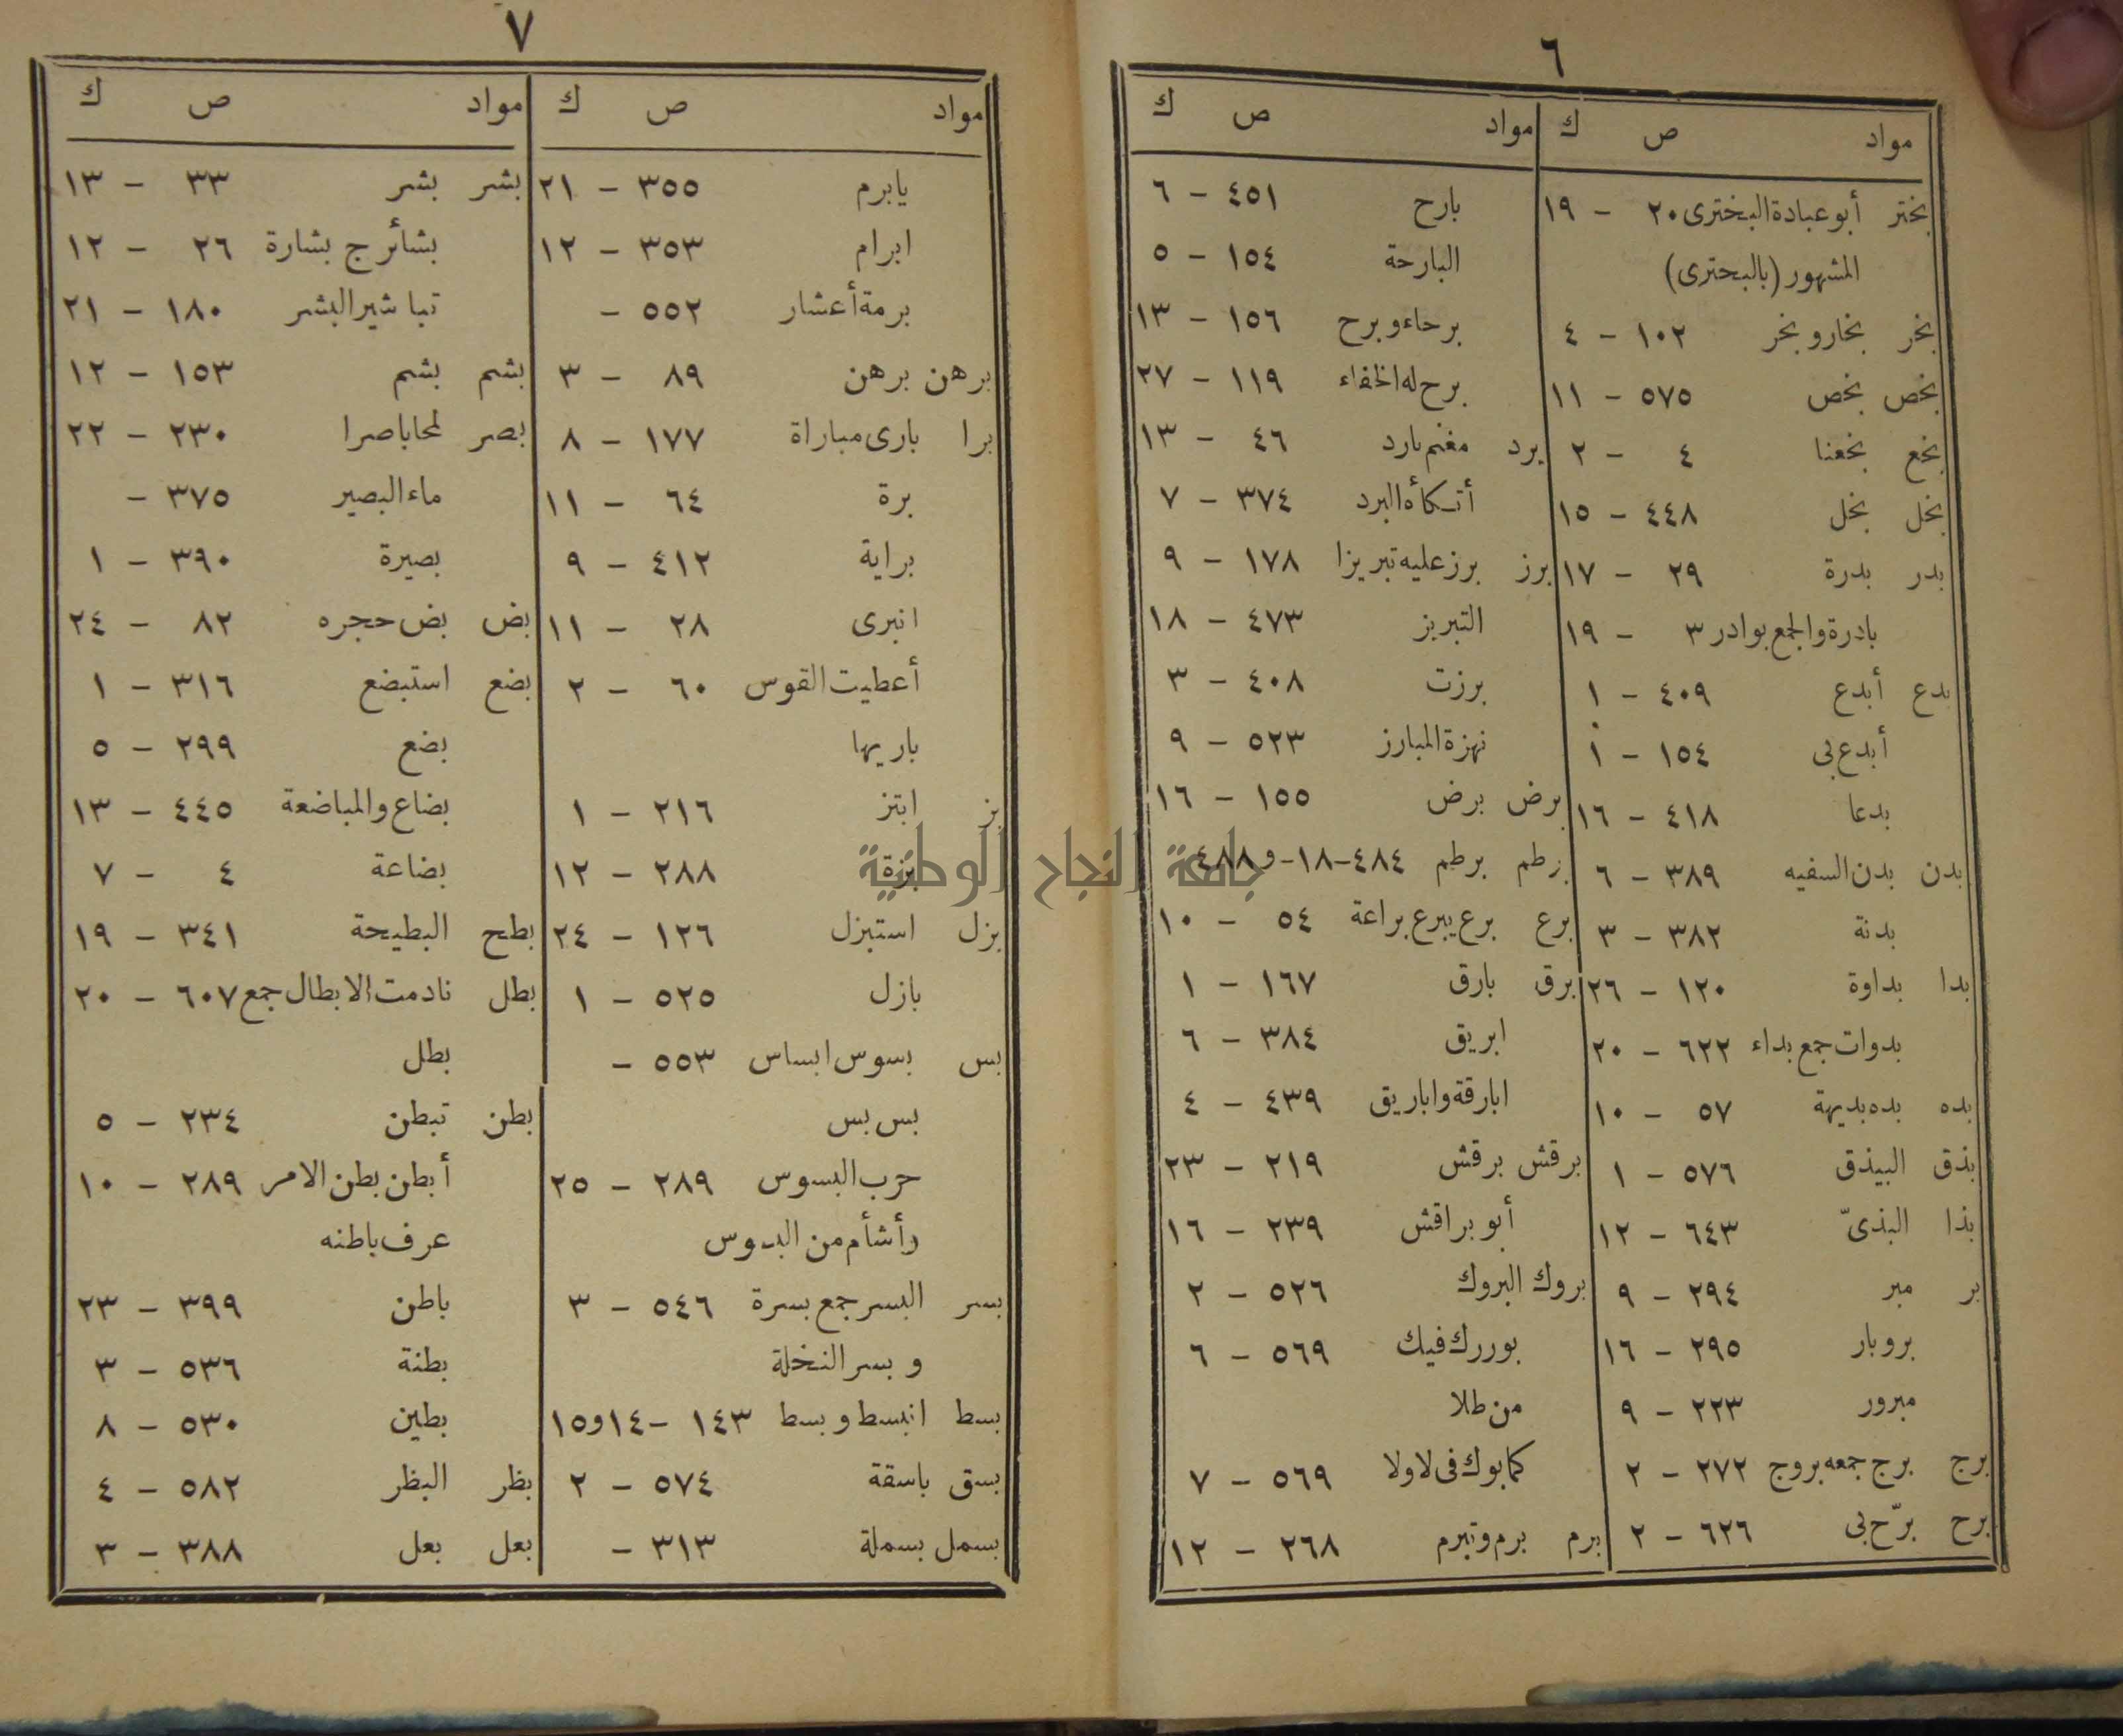 ٦
مواد ص ك
بختر أبو عبادة البخترى ٢٠ - ١٩
المشهور (بالبحترى)
بخر بخار و بخر ١٠٢ - ٤
بخص بخص ٥٧٥ - ١١
بخع بخعنا ٤ - ٢
بخل بخل ٤٤٨ - ١٥
بدر بدرة ٢٩ - ١٧
بادرة والجمع بوادر ٣ - ١٩
بدع أبدع ٤٠٩ - ١
أبدع بى ١٥٤ - ١
بدعا ٤١٨ - ١٦
بدن بدن السفيه ٣٨٩ - ٦
بدنة ٣٨٢ - ٣
بدا بداوة ١٢٠ - ٢٦
بدوات جمع بداء ٦٢٢ - ٢٠
بده بده بديهة ٥٧ - ١٠
بذق البيذق ٥٧٦ - ١
بذا البذىّ ٦٤٣ - ١٢
بر مبر ٢٩٤ - ٩
بر و بار ٢٩٥ - ١٦
مبرور ٢٢٣ - ٩
برج برج جمعه بروج ٢٧٢ - ٢
برح برّح بى ٦٢٦ - ٢
مواد ص ك
بارح ٤٥١ - ٦
البارحة ١٥٤ - ٥
برحاء و برح ١٥٦ - ١٣
برح له الخفاء ١١٩ - ٢٧
برد مغنم بارد ٤٦ - ١٣
أتكأة البرد ٣٧٤ - ٧
برز برز عليه تبريزا ١٧٨ - ٩
التبريز ٤٧٣ - ١٨
برزت ٤٠٨ - ٣
نهزة المبارز ٥٢٣ - ٩
برض برض ١٥٥ - ١٦
برطم برطم ٤٨٤-١٨- و ٤٨٨
برع برع يبرع براعة ٥٤ - ١٠
برق بارق ١٦٧ - ١
ابريق ٣٨٤ - ٦
ابارقة و اباريق ٤٣٩ - ٤
برقش برقش ٢١٩ - ٢٣
أبو براقش ٢٣٩ - ١٦
بروك البروك ٥٢٦ - ٢
بوررك فيك ٥٦٩ - ٦
من طلا
كما بوك فى لا ولا ٥٦٩ - ٧
برم برم وتبرم ٢٦٨ - ١٢
٧
مواد ص ك
يا برم ٣٥٥ - ٢١
ابرام ٣٥٣ - ١٢
برمة أعشار ٥٥٢ -
برهن برهن ٨٩ - ٣
برا بارى مباراة ١٧٧ - ٨
برة ٦٤ - ١١
براية ٤١٢ - ٩
انبرى ٢٨ - ١١
أعطيت القوس ٦٠ - ٢
باريها
بز ابتز ٢١٦ - ١
بزة ٢٨٨ - ١٢
بزل استبزل ١٢٦ - ٢٤
بازل ٥٢٥ - ١
بس بسوس ابساس ٥٥٣ -
بس بس
حرب البسوس ٢٨٩ - ٢٥
وأشأم من البسوس
بسر البسر جمع بسرة ٥٤٦ - ٣
و بسر النخلة
بسط انبسط و بسط ١٤٣ - ١٤و١٥
بسق باسقة ٥٧٤ - ٢
بسمل بسملة ٣١٣ -
مواد ص ك
بشر بشر ٣٣ - ١٣
بشائر ج بشارة ٢٦ - ١٢
تباشير البشر ١٨٠ - ٢١
بشم بشم ١٥٣ - ١٢
بصر لمحا باصرا ٢٣٠ - ٢٢
ماء البصير ٣٧٥ -
بصيرة ٣٩٠ - ١
بض بض حجره ٨٢ - ٢٤
بضع استبضع ٣١٦ - ١
بضع ٢٩٩ - ٥
بضاع والمباضعة ٤٤٥ - ١٣
بضاعة ٤ - ٧
بطح البطيحة ٣٤١ - ١٩
بطل نادمت الابطال جمع ٦٠٧ - ٢٠
بطل
بطن تبطن ٢٣٤ - ٥
أبطن بطن الامر ٢٨٩ - ١٠
عرف باطنه
باطن ٣٩٩ - ٢٣
بطنة ٥٣٦ - ٣
بطين ٥٣٠ - ٨
بظر البظر ٥٨٢ - ٤
بعل بعل ٣٨٨ - ٣
جامعة النجاح الوطنية